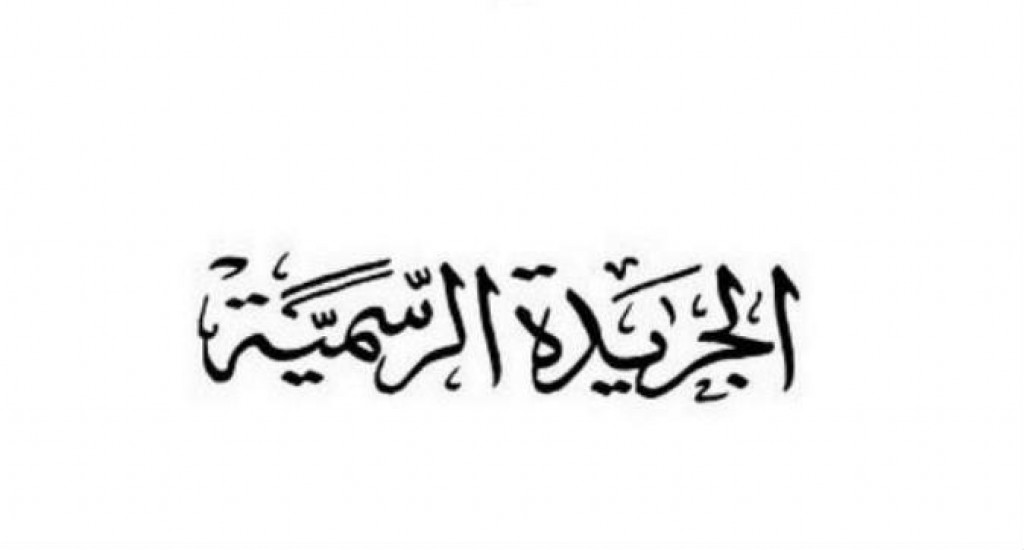 الجريدة الرّسميّة